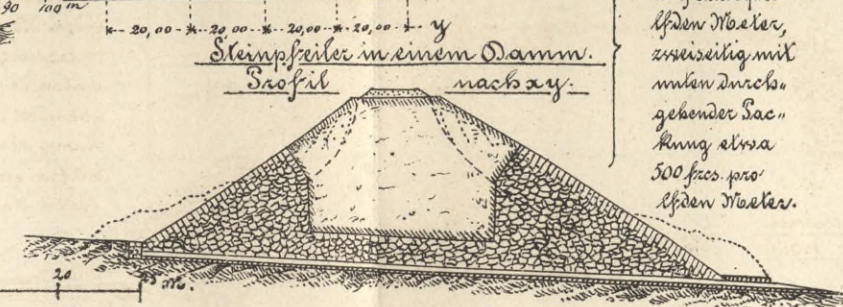 90 100 m
20,00 20,00 20,00 20,00 y
Steinpfeiler in einem Damm.
Profil nach xy.
lfden Meter,
zweiseitig mit
unten durch„
gehender Pac„
kung etwa
500 frcs. pro
lfden Meter.
20
m.